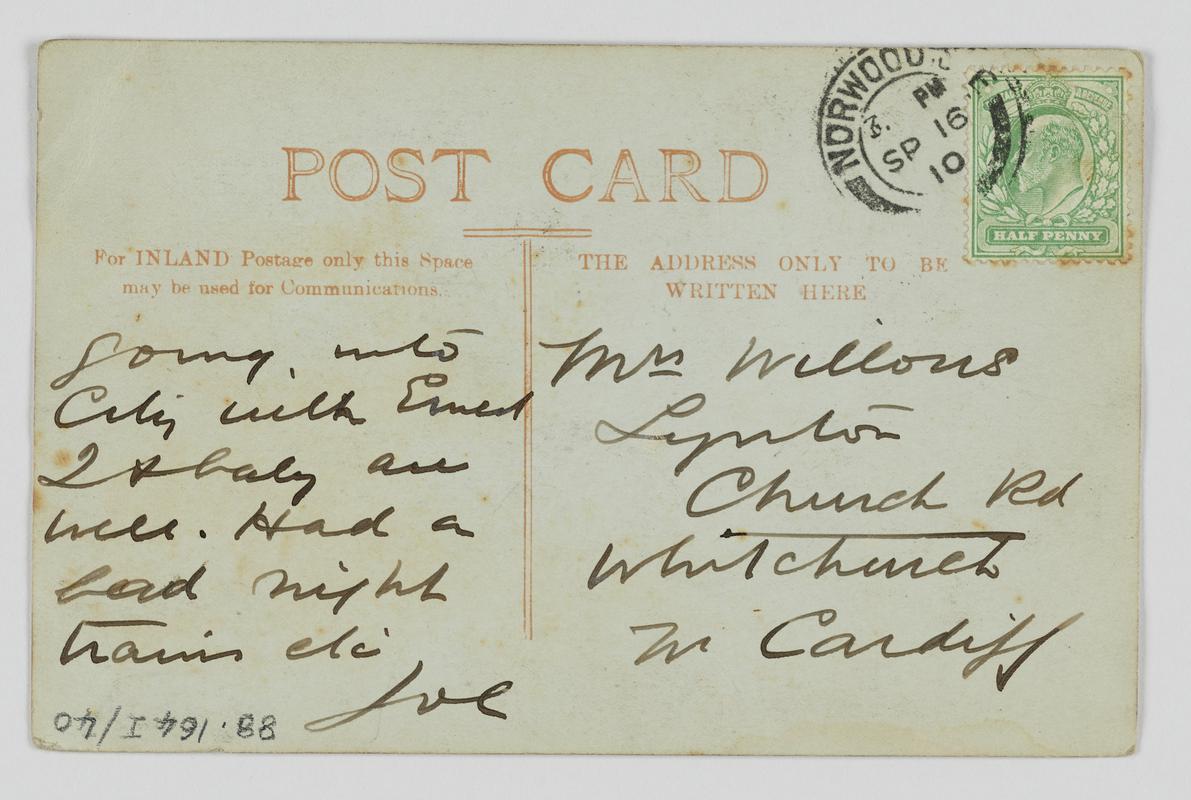 POST CARD
For INLAND Postage only this Space
may be used for Communications.
THE ADDRESS ONLY TO BE
WRITTEN HERE
NORWOOD S.E
3. PM
SP 16
10
HALF PENNY
going into
City with Ernest
2 & baby are
well. Had a
bad night
trains etc
Joe
Mrs Willows
Lynton
Church Rd
Whitchurch
Nr Cardiff
88.164 I/40